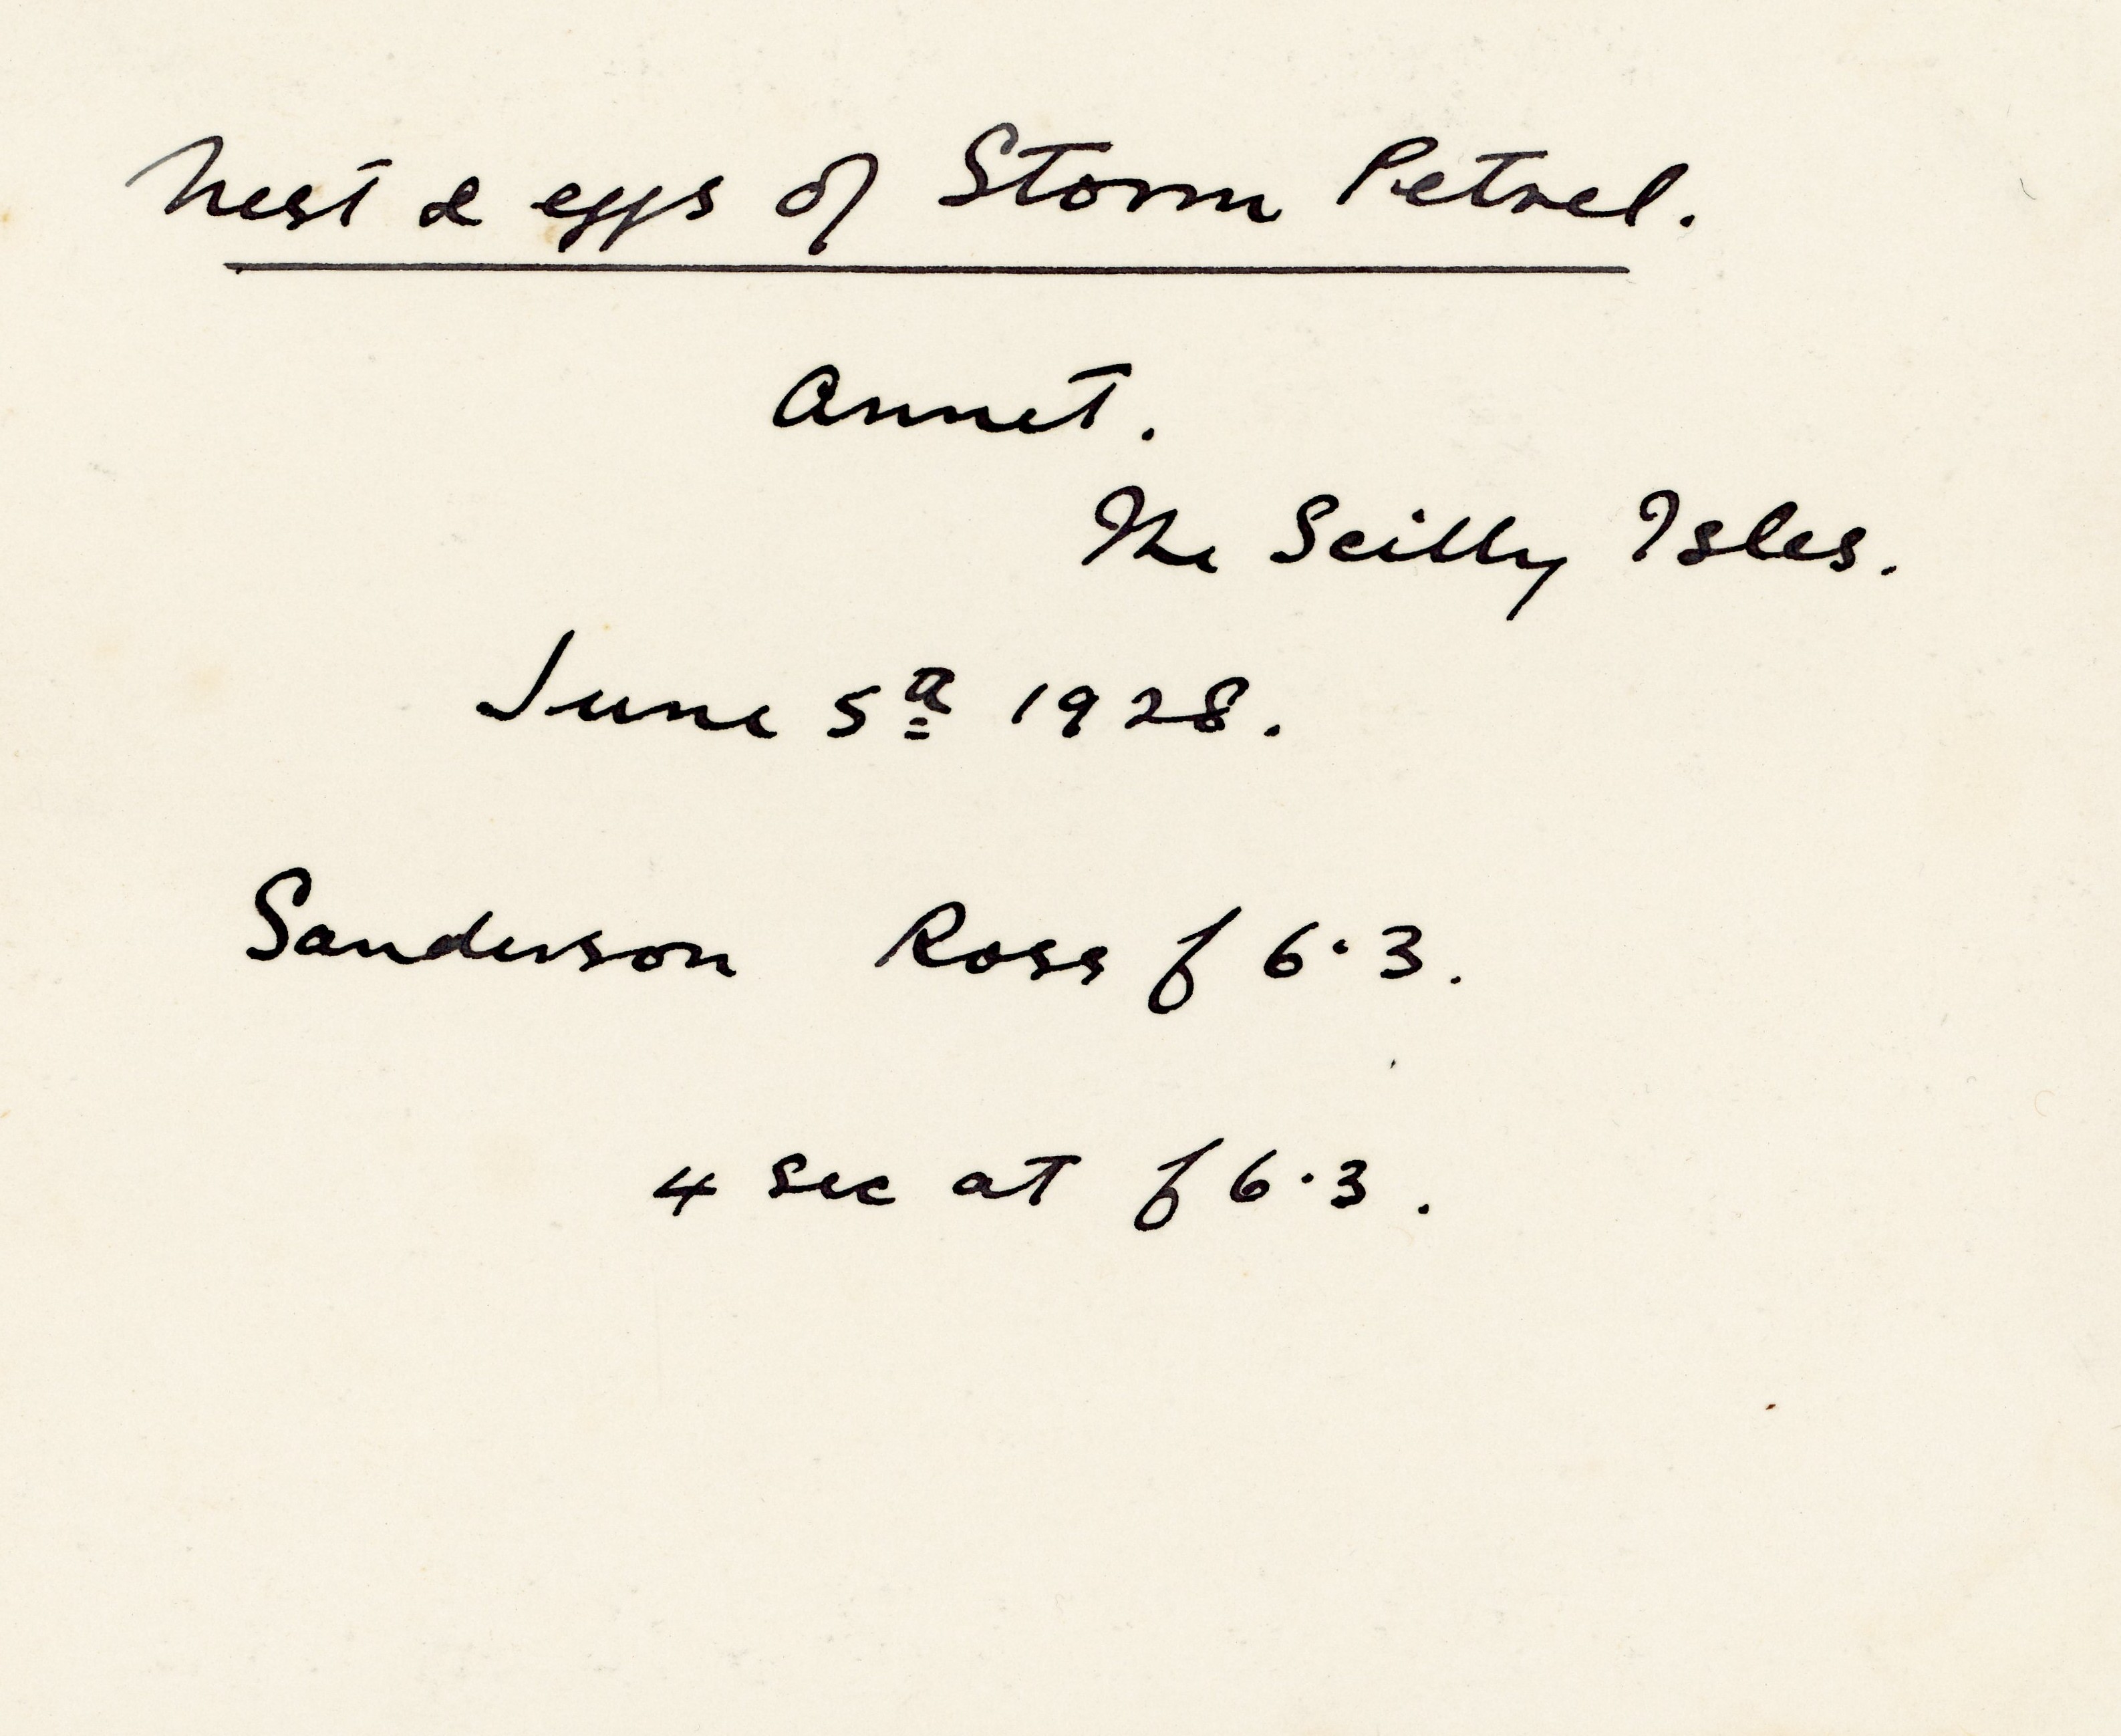 Nest & eggs of Storm Petrel.
Annet.
The Scilly Isles.
June 5th 1928.
Sanderson Ross f 6·3.
4 sec at f 6·3.